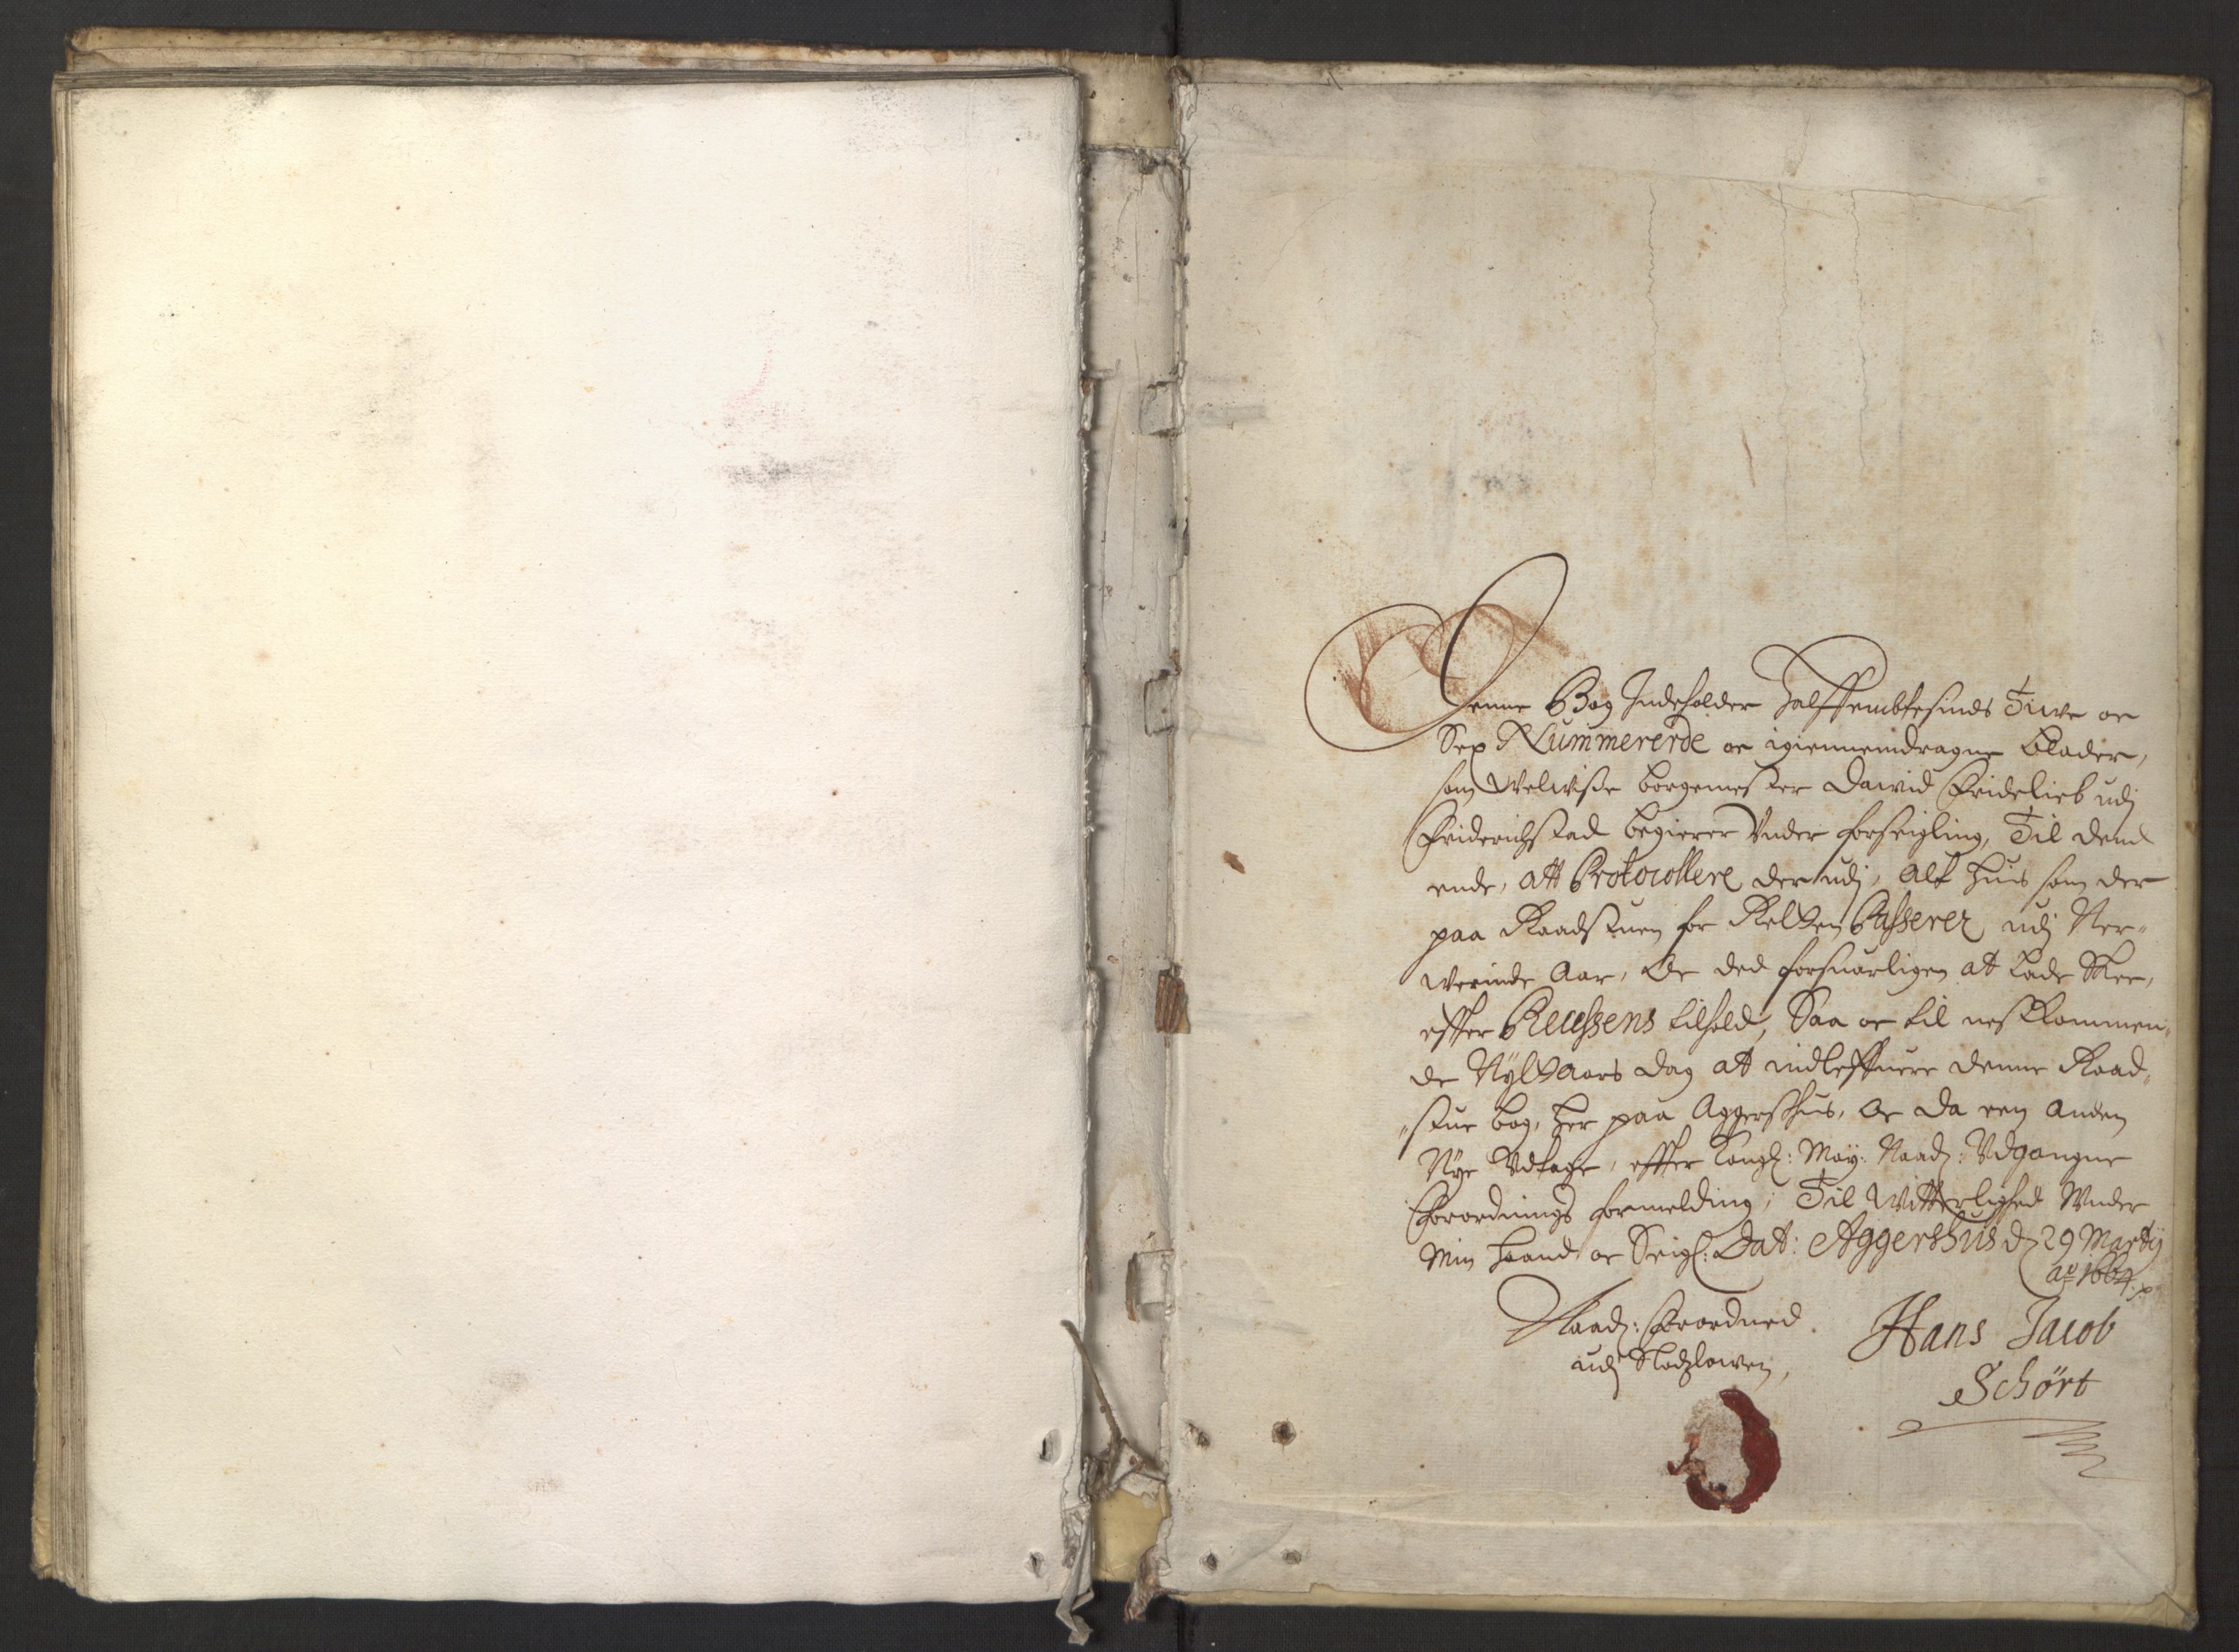 Denne Bog Indeholder Halffembtesinds Tiuve oc
Sex Nummererde oc igiennemdragne blader,
som Welwise borgemester Dawid Fridelieb udj
Friderichstad begierer Vnder forseigling, Til dend
ende, att Protocollere der udj, Alt huis som der
paa Raadstuen for Retten Passerer udj Ner-
werinde Aar, Oc ded forsuarligen at lade Skee,
effter Recessens tilhold, Saa oc til nestkommen-
de Nyttaars dag at indleffuere denne Raad-
stue bog, her paa Aggershus, Oc da een anden
Nye Vdtage, effter Kongl: May: Naad: Vdgangne
Forordnings formelding, Til Witterlighed Wnder
Min Haand oc Seigl: Dat: Aggershus d 29 Martij
ao 1664.
Naad: Forordned
udj Slodzlowen,
Hans Jacob
Schört